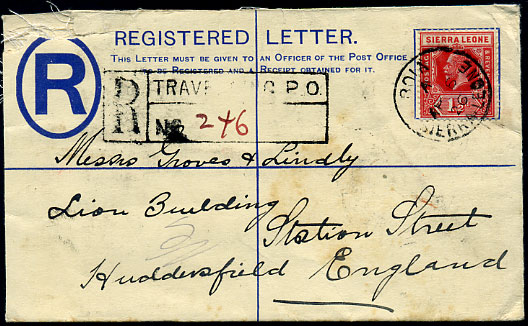 REGISTERED LETTER.
THIS LETTER MUST BE GIVEN TO AN OFFICER OF THE POST OFFICE
TO BE REGISTERED AND A RECEIPT OBTAINED FOR IT.
R
SIERRA LEONE
POSTAGE
1D
SIERRA
R
TRAV G P.O.
No 246
Messrs Groves & Lindly
Lion Building
Station Street
Huddersfield England